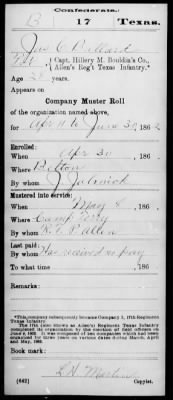 Confederate.
B 17 Texas.
Jas C Billard
Pvt, Capt. Hillery M. Bouldin's Co.,
Allen's Reg't Texas Infantry.*
Age 28 years.
Appears on
Company Muster Roll
of the organization named above,
for Apr 11 to June 30, 1862
Enrolled:
When Apr 30, 186
Where Belton
By whom
Mustered into service:
When May 8, 186
Where Camp Terry
By whom R. T. P. Allen
Last paid:
By whom Has received no pay
To what time , 186
Remarks:
*This company subsequently became Company I, 17th Regiment
Texas Infantry.
The 17th (also known as Allen's) Regiment Texas Infantry
completed its organization by the election of field officers on
June 2, 1862. It was composed of ten companies which had been
organized for three years on various dates during March, April
and May, 1862.
Book mark:
(642) Copyist.